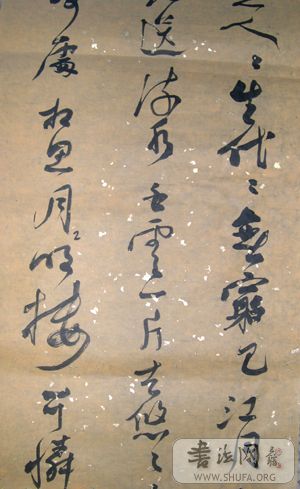 人〻生代〻無窮已江月
送流水白雲一片去悠〻
處相思月明樓可憐
書法网
WWW.SHUFA.ORG